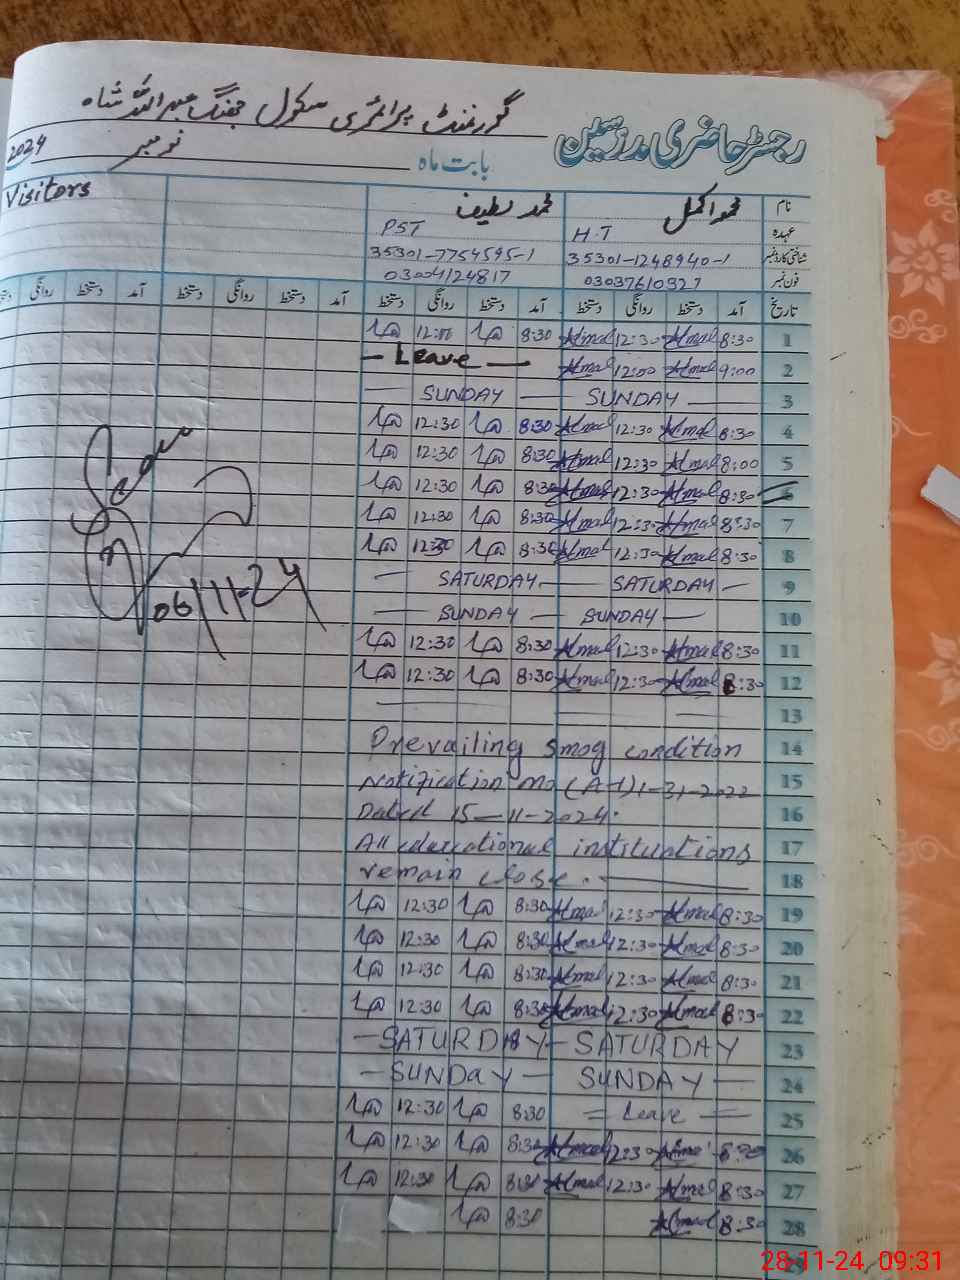 گورنمنٹ پرائمری سکول جھنگ عبداللہ شاہ
رجسٹر حاضری مدرسین
بابت ماہ نومبر 2024
نام محمد اکمل محمد لطیف Visitors
عہدہ H.T PST
شناختی کارڈ نمبر 35301-1248940-1 35301-7754595-1
فون نمبر 03037610327 03004124817
تاریخ آمد دستخط روانگی دستخط آمد دستخط روانگی دستخط آمد دستخط روانگی دستخط آمد دستخط روانگی دستخط
1 8:30 Akmal 12:30 Akmal 8:30
2 9:00 Akmal 12:00 Akmal — Leave —
3 — SUNDAY — SUNDAY —
4 8:30 Akmal 12:30 Akmal 8:30 12:30
5 8:00 Akmal 12:30 Akmal 8:30 12:30
6 8:30 Akmal 12:30 Akmal 8:30 12:30
7 8:30 Akmal 12:30 Akmal 8:30 12:30
8 8:30 Akmal 12:30 Akmal 8:30 12:30
9 — SATURDAY — SATURDAY —
10 — SUNDAY — SUNDAY —
11 8:30 Akmal 12:30 Akmal 8:30 12:30
12 8:30 Akmal 12:30 Akmal 8:30 12:30
13
14 Prevailing smog condition
15 Notification no (A-1) 1-31-2022
16 Dated 15-11-2024.
17 All educational instituations
18 remain close.
19 8:30 Akmal 12:30 Akmal 8:30 12:30
20 8:30 Akmal 12:30 Akmal 8:30 12:30
21 8:30 Akmal 12:30 Akmal 8:30 12:30
22 8:30 Akmal 12:30 Akmal 8:30 12:30
23 — SATURDAY — SATURDAY
24 — SUNDAY — SUNDAY —
25 = Leave = 8:30 12:30
26 8:30 Akmal 12:30 Akmal 8:30 12:30
27 8:30 Akmal 12:30 Akmal 8:30 12:30
28 8:30 Akmal 8:30
29
06/11-24
28-11-24, 09:31